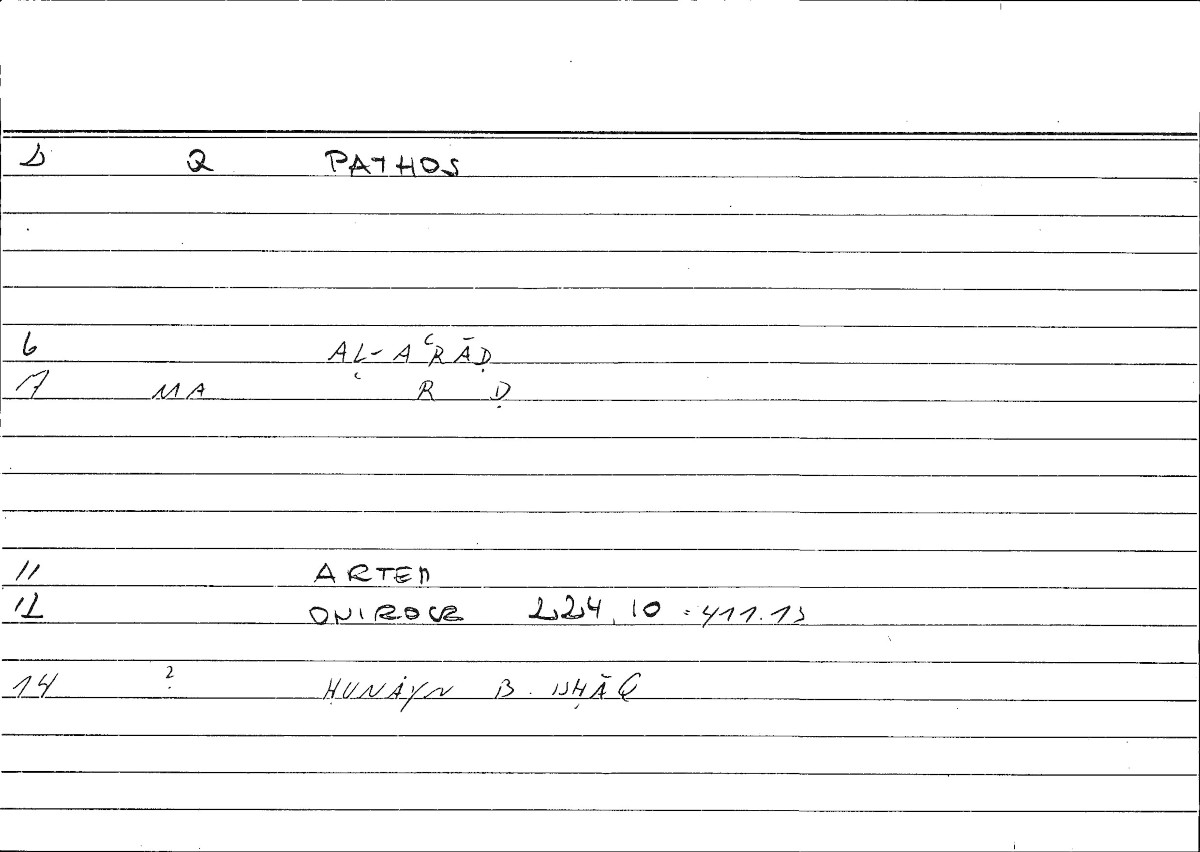 1 Q PATHOS
6 AL-AʿRĀḌ
7 MA R Ḍ
11 ARTEM
12 ONIROCR 224,10 = 411.13
14 2 ḤUNAYN B. ISḤĀQ